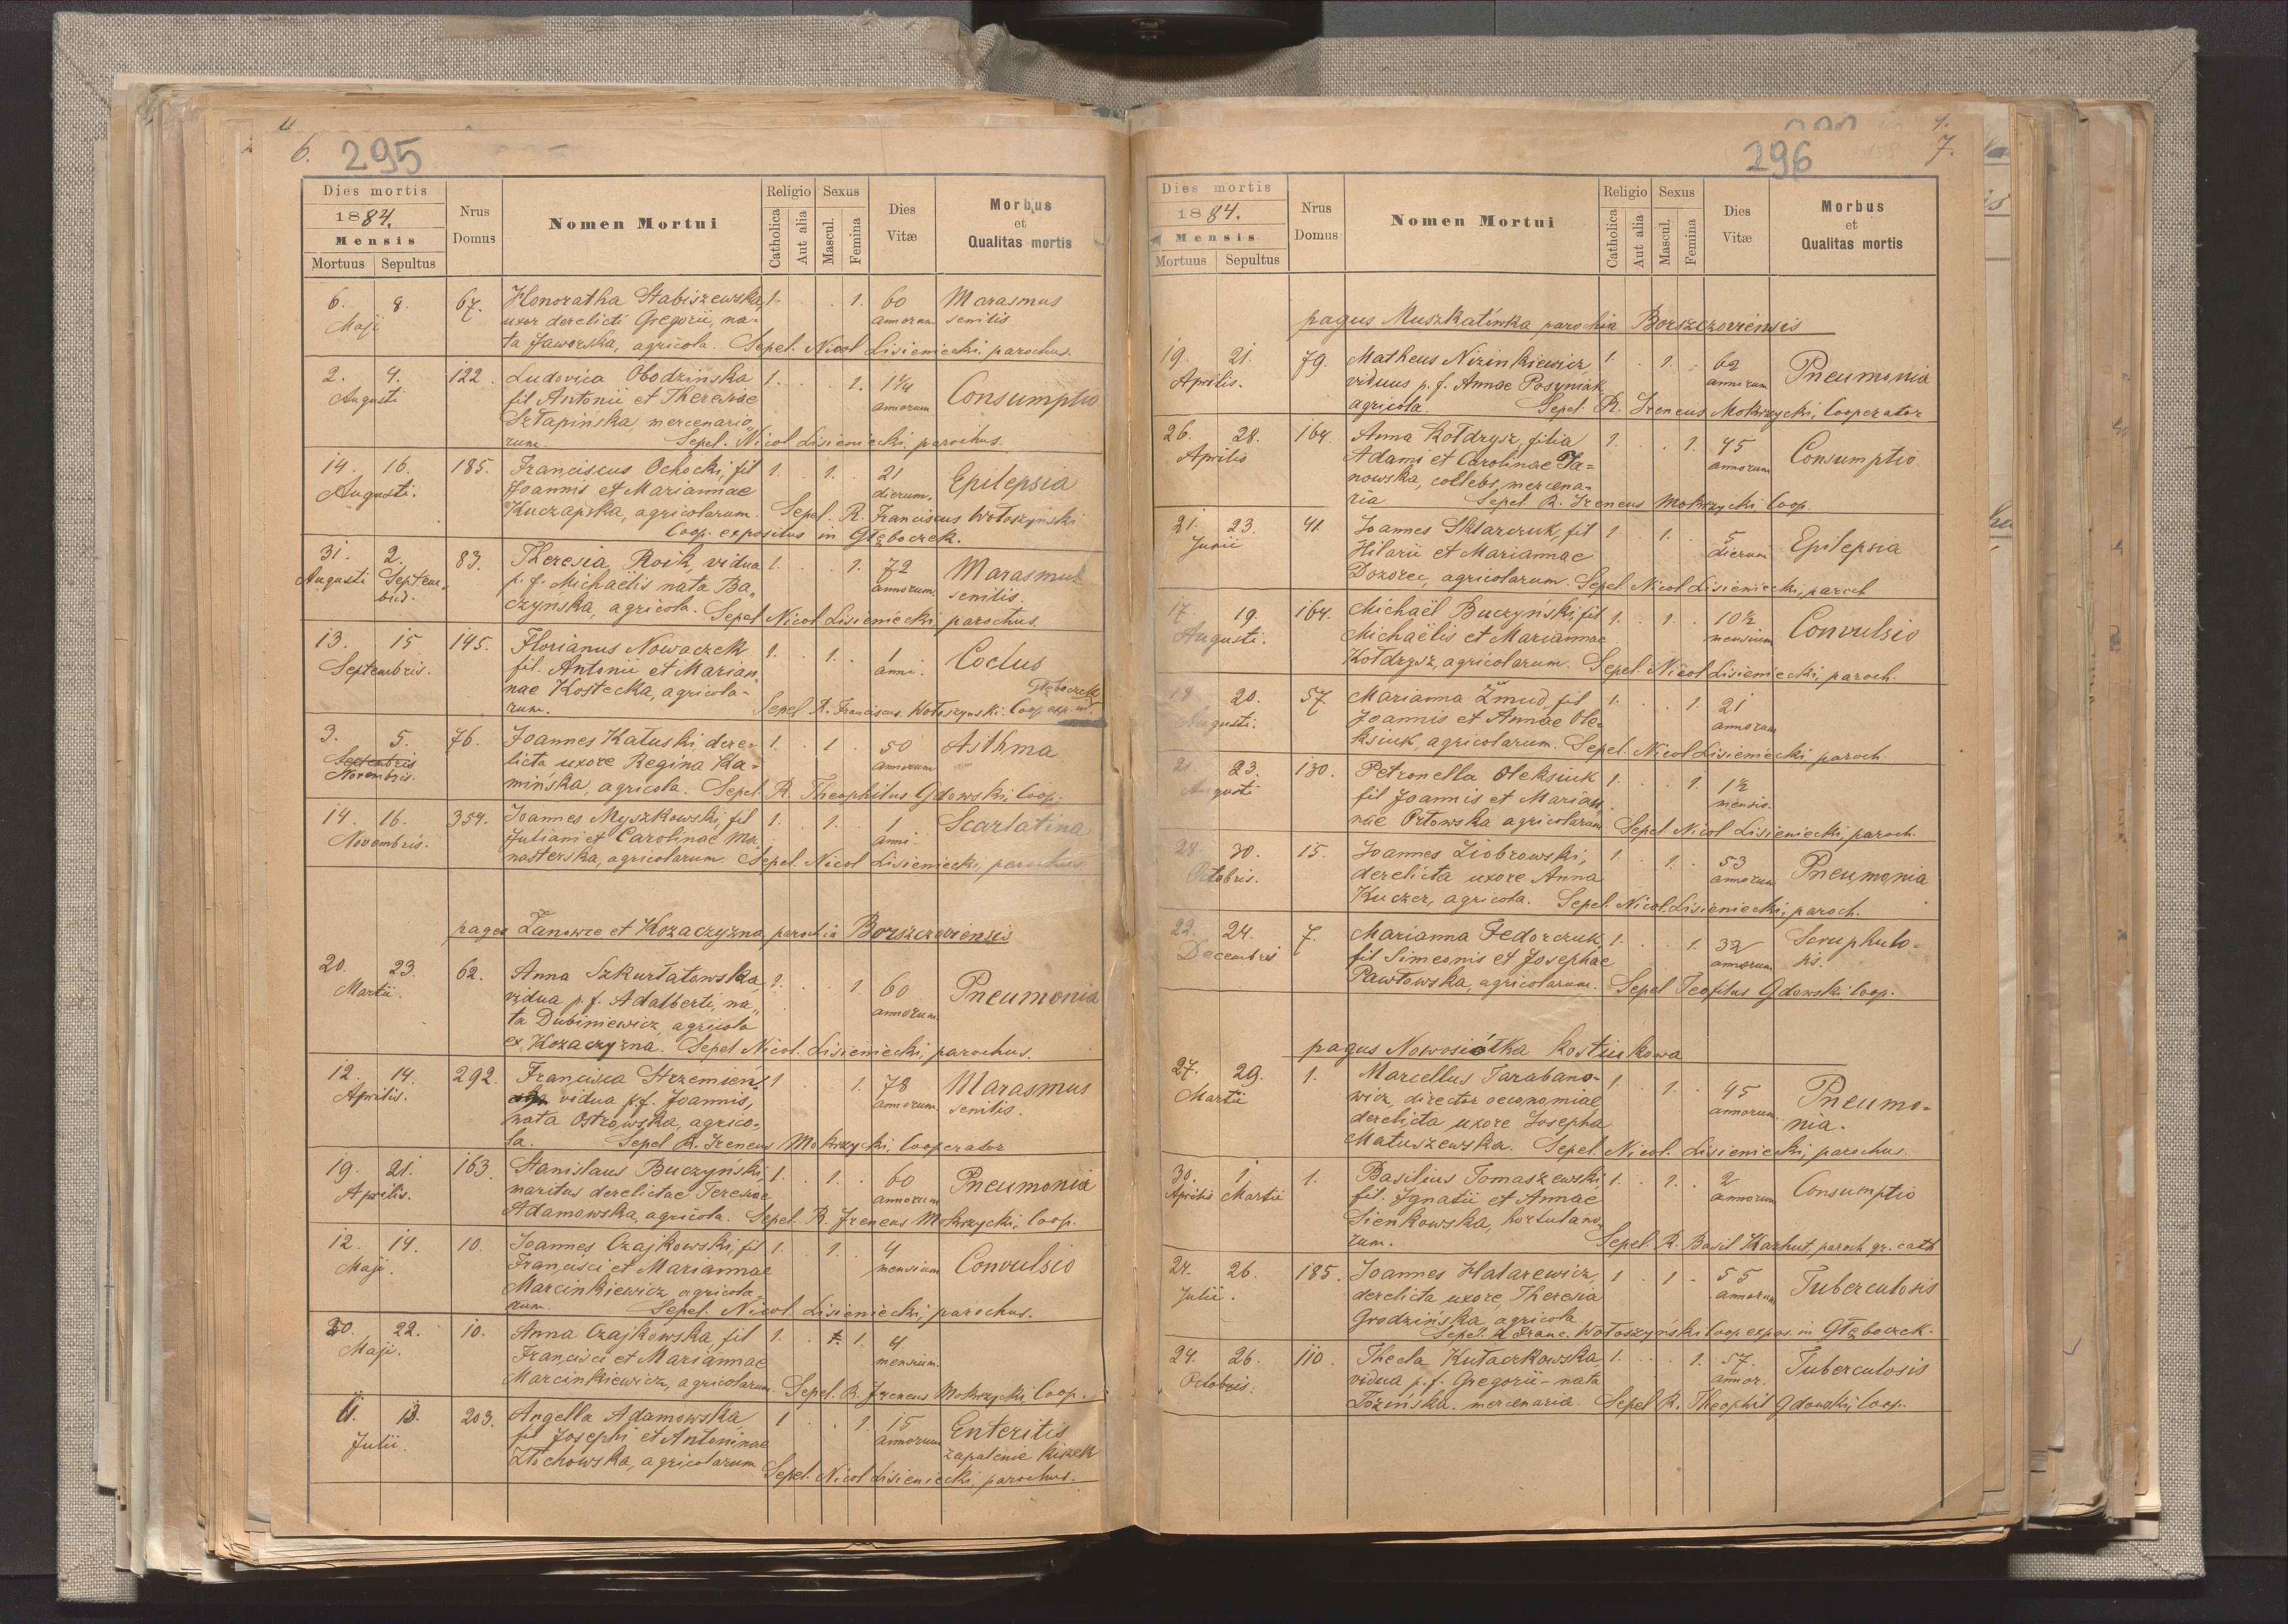 6. 295
Dies mortis
1884.
Mensis
Mortuus Sepultus
Nrus Domus
Nomen Mortui
Religio Sexus
Catholica Aut alia Mascul. Femina
Dies Vitæ
Morbus et Qualitas mortis
6. 8. 67. Honoratha Stabiszewska, 1. . . 1. 60 Marasmus
Maji uxor derelicti Gregorii, na- annorum senilis
ta Jaworska, agricola. Sepel. Nicol Lisieniecki, parochus.
2. 4. 122. Ludovica Obodzinska 1. . . 1. 1¼ Consumptio
Augusti fil Antonii et Theresiae annorum
Sztapińska, mercenario
rum. Sepel. Nicol Lisieniecki, parochus.
14. 16. 185. Franciscus Ochocki, fil 1. . 1. . 21 Epilepsia
Augusti. Joannis et Mariannae dierum.
Kuczapska, agricolarum. Sepel. R. Franciscus Wołoszyński
Coop. expositus in Głęboczek.
31. 2. 83. Theresia Roik, vidua 1. . . 1. 72 Marasmus
Augusti Septem p. f. Michaelis nata Ba„ annorum senilis.
bris. czyńska, agricola. Sepel Nicol Lisieniecki, parochus.
13. 15 145. Florianus Nowaczek 1. . 1. . 1 Coctus
Septembris. fil. Antonii et Marian„ anni.
nae Kostecka, agricola- Głęboczek
rum. Sepel R. Franciscus Wołoszynski. Coop. exp. in
3. 5. 76. Joannes Katuski, dere- 1. . 1 . 50 Asthma
Septembris licta uxore Regina Ka- annorum
Novembris. mińska, agricola. Sepel. R. Theophilus Gdowski, Coop.
14. 16. 354. Joannes Myszkowski, fil 1. . 1. . 1 Scarlatina
Novembris. Juliani et Carolinae Mo- anni.
nasterska, agricolarum. Sepel. Nicol Lisieniecki, parochus
pagus Łanowce et Kozaczyzna, parochia Borszczoviensis
20. 23. 62. Anna Szkurłatowska, 1. . . 1. 60 Pneumonia
Martii. vidua p. f. Adalberti, na„ annorum.
ta Dubiniewicz, agricola
ex Kozaczyzna. Sepel Nicol. Lisieniecki, parochus.
12. 14. 292. Francisca Strzemień 1 . . 1. 78 Marasmus
Aprilis. vidua p. f. Joannis, annorum senilis.
nata Ostrowska, agrico-
la. Sepel R. Ireneus Mokrzycki, Cooperator
19. 21. 163. Stanislaus Buczyński, 1. . 1. . 60 Pneumonia
Aprilis. maritus derelictae Teresiae annorum
Adamowska, agricola. Sepel. R. Ireneus Mokrzycki, Coop.
12. 14. 10. Joannes Czajkowski, fil 1. . 1. . 4 Convulsio
Maji. Francisci et Mariannae mensium
Marcinkiewicz, agricola
rum. Sepel. Nicol. Lisieniecki, parochus.
20. 22. 10. Anna Czajkowska, fil 1. . 1. 4
Maji. Francisci et Mariannae mensium.
Marcinkiewicz, agricolarum. Sepel. R. Ireneus Mokrzycki, Coop.
11. 13. 203. Angella Adamowska 1 . . 1. 15 Enteritis
Julii. fil Josephi et Antoninae annorum zapalenie kiszek
Złochowska, agricolarum Sepel. Nicol Lisieniecki, parochus.
296 7.
Dies mortis
1884.
Mensis
Mortuus Sepultus
Nrus Domus
Nomen Mortui
Religio Sexus
Catholica Aut alia Mascul. Femina
Dies Vitæ
Morbus et Qualitas mortis
pagus Muszkatińka parochia Borszczoviensis
19. 21. 79. Matheus Nizinkiewicz, 1. . 1. . 62 Pneumonia
Aprilis. viduus p. f. Annae Posyniak annorum
agricola. Sepel. R. Ireneus Mokrzycki, Cooperator
26. 28. 164. Anna Kołdrysz, filia 1. . . 1. 45 Consumptio
Aprilis Adami et Carolinae Ja- annorum
nowska, coelebs, mercena-
ria Sepel R. Ireneus Mokrzycki Coop.
21. 23. 41. Joannes Sklarczuk, fil 1. . 1. . 5 Epilepsia
Junii Hilarii et Mariannae dierum
Dozorec, agricolarum. Sepel. Nicol Lisieniecki, paroch
17. 19. 164. Michaël Buczyński, fil 1. . 1. . 10½ Convulsio
Augusti. Michaëlis et Mariannae mensium
Kołdrysz, agricolarum. Sepel. Nicol Lisieniecki, paroch.
18 20. 57. Marianna Żmud, fil 1. . . 1. 21
Augusti. Joannis et Annae Ole- annorum
ksiuk, agricolarum. Sepel. Nicol Lisieniecki, paroch.
21. 23. 130. Petronella Oleksiuk 1. . . 1. 1½
Augusti fil Joannis et Marian„ mensis.
nae Orłowska agricolarum Sepel Nicol Lisieniecki, paroch.
28. 30. 15. Joannes Ziobrowski, 1. . 1. . 53 Pneumonia
Octobris. derelicta uxore Anna annorum
Kuczer, agricola. Sepel. Nicol Lisieniecki, paroch.
22. 24. 7. Marianna Fedorczuk, 1. . . 1. 32 Scruphulo-
Decembris fil Simeonis et Josephae annorum sis.
Pawłowska, agricolarum. Sepel Teofilus Gdowski Coop.
pagus Nowosiółka Kostiukowa
27. 29. 1. Marcellus Tarabano- 1. . 1. . 45 Pneumo-
Martii wicz, director oeconomiae annorum nia.
derelicta uxore Josepha
Matuszewska. Sepel. Nicol. Lisieniecki, parochus.
30. 1 1. Basilius Tomaszewski 1. . 1. . 2 Consumptio
Aprilis Martii fil. Ignatii et Annae annorum
Sienkowska, hortulano„
rum. Sepel. R. Basil Karhut, paroch gr. cath
24. 26. 185. Joannes Hatarewicz, 1 . 1 . 55 Tuberculosis
Julii. derelicta uxore, Theresia annorum
Grodzińska, agricola
Sepel. R Franc. Wołoszyński Coop expos. in Głęboczek.
24. 26. 110. Thecla Kułaczkowska, 1. . . 1. 57. Tuberculosis
Octobris. vidua p. f. Gregorii - nata annor.
Łozińska. mercenaria. Sepel R. Theophil Gdowski, Coop.